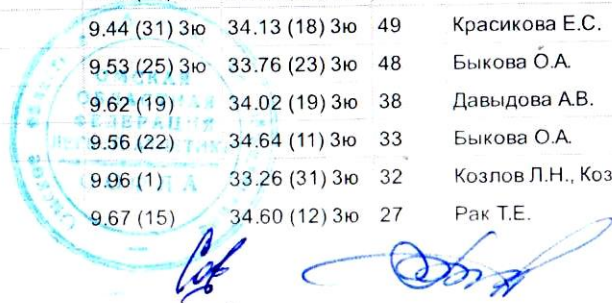 9.44 (31) 3ю 34.13 (18) 3ю 49 Красикова Е.С.
9.53 (25) 3ю 33.76 (23) 3ю 48 Быкова О.А.
9.62 (19) 34.02 (19) 3ю 38 Давыдова А.В.
9.56 (22) 34.64 (11) 3ю 33 Быкова О.А.
9.96 (1) 33.26 (31) 3ю 32 Козлов Л.Н., Коз
9.67 (15) 34.60 (12) 3ю 27 Рак Т.Е.